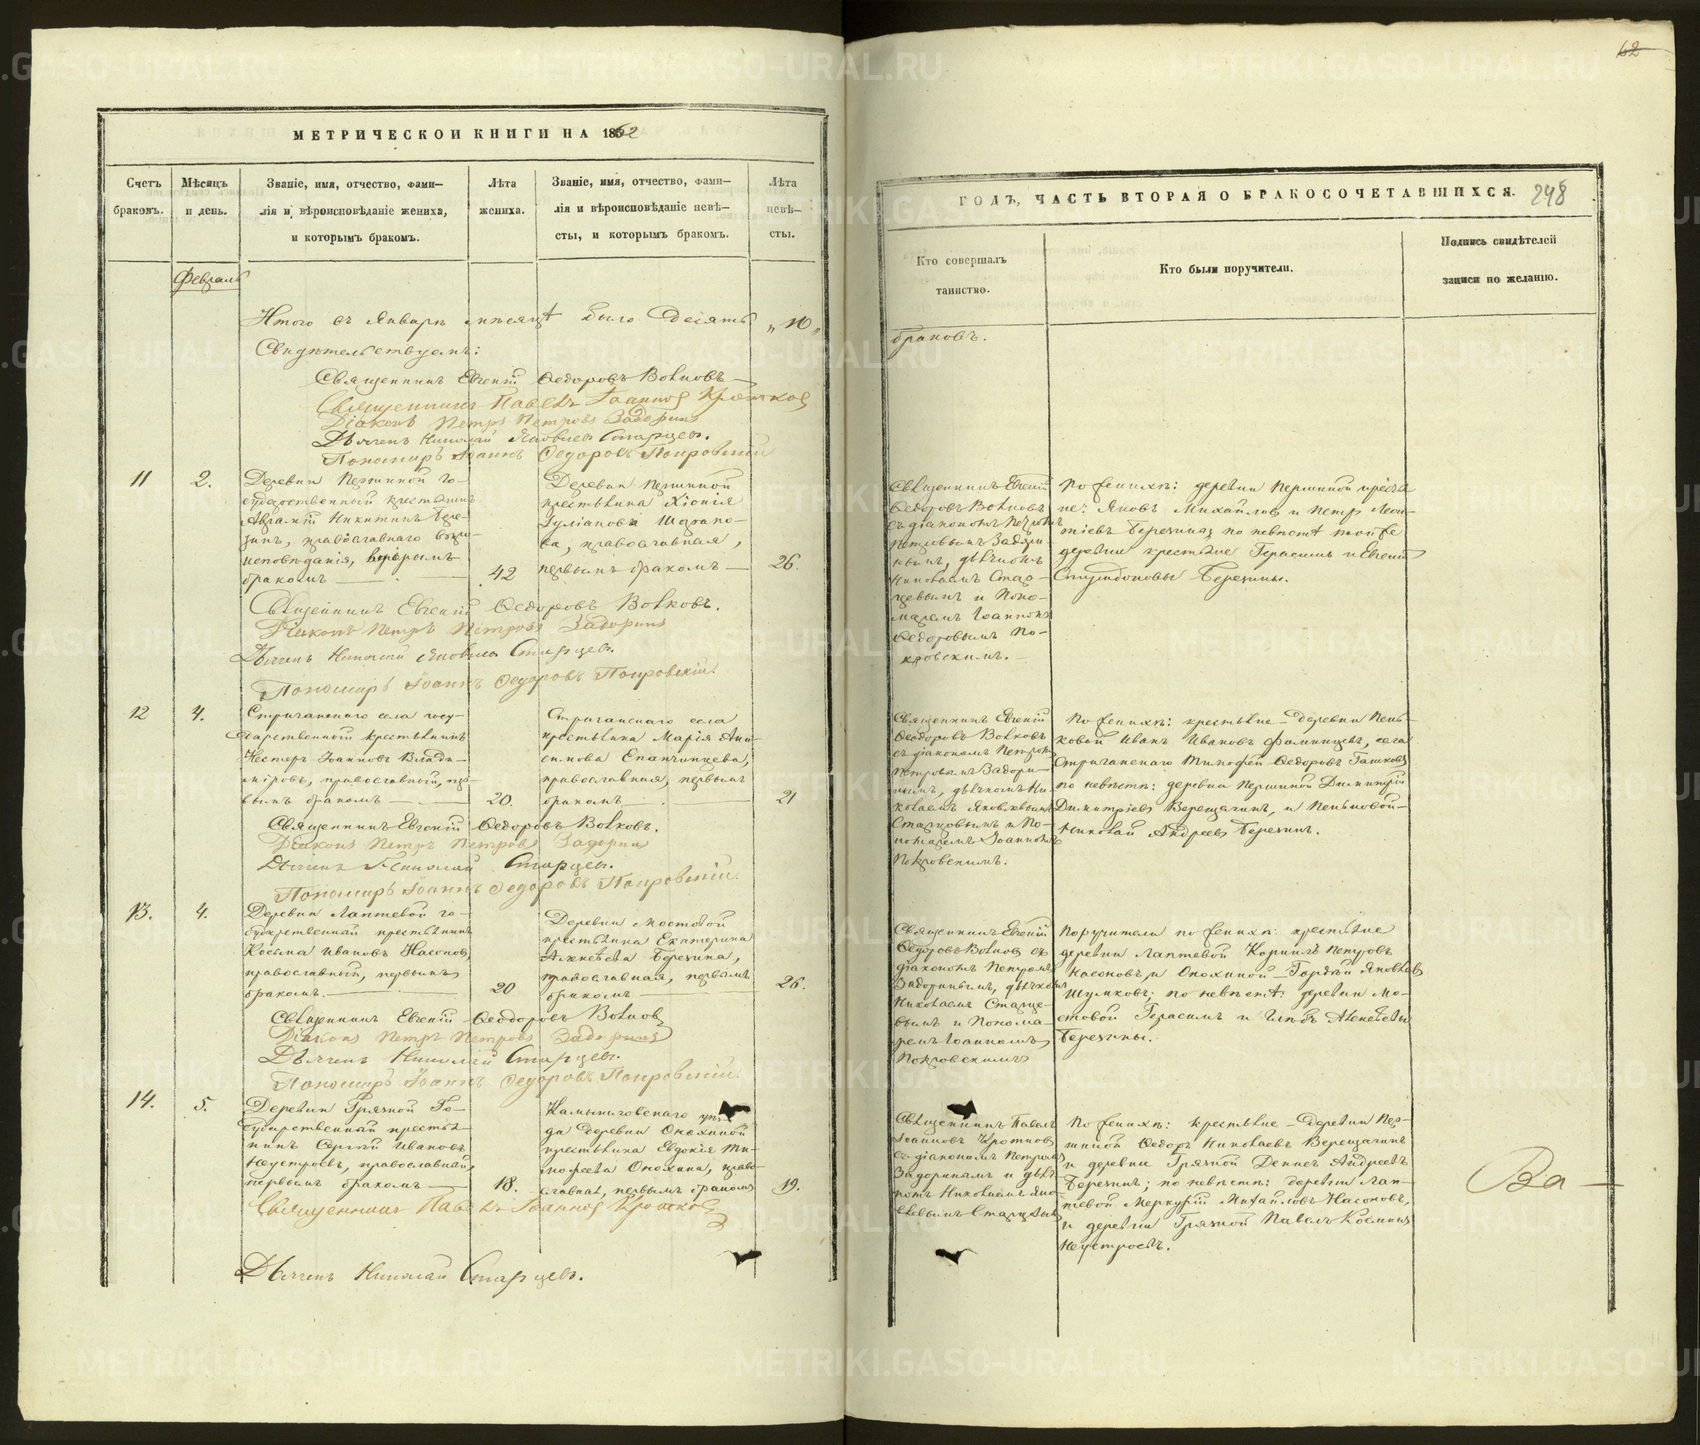 62
МЕТРИЧЕСКОЙ КНИГИ НА 1862
Счетъ браковъ.
Мѣсяцъ и день.
Званіе, имя, отчество, фами-
лія и вѣроисповѣданіе жениха,
и которымъ бракомъ.
Лѣта
жениха.
Званіе, имя, отчество, фами-
лія и вѣроисповѣданіе невѣ-
сты, и которымъ бракомъ.
Лѣта
невѣ-
сты.
Февраль
Итого въ Январѣ мѣсяцѣ было Десять „10„
Свидѣтельствуемъ:
Священникъ Евгеній Ѳедоровъ Волковъ
Священникъ Павелъ Іоанновъ Кротковъ
Діаконъ Петръ Петровъ Задоринъ
Дьячекъ Николай Яковлевъ Старцевъ.
Пономарь Іоаннъ Ѳедоровъ Покровскій
11
2.
Деревни Першиной го-
сударственный крестьянинъ
Никитинъ Бере-
зинъ, православнаго вѣро-
исповѣданія, вторымъ
бракомъ
42
Деревни Першиной
крестьянка Хіонія
Іуліанова Шарапо-
ва, православная,
первымъ бракомъ
26.
Священникъ Евгеній Ѳедоровъ Волковъ.
Діаконъ Петръ Петровъ Задоринъ
Дьячекъ Николай Яковлевъ Старцевъ.
Пономарь Іоаннъ Ѳедоровъ Покровскій.
12
4.
Стриганскаго села госу-
дарственный крестьянинъ
Нестеръ Іоанновъ Влади-
міровъ, православный, пер-
вымъ бракомъ
20.
Стриганскаго села
крестьянка Марія Ани-
симова Епанчинцева,
православная, первымъ
бракомъ
21
Священникъ Евгеній Ѳедоровъ Волковъ.
Діаконъ Петръ Петровъ Задоринъ
Дьячекъ Николай Старцевъ.
Пономарь Іоаннъ Ѳедоровъ Покровскій.
13.
4.
Деревни Лаптевой го-
сударственный крестьянинъ
Косьма Ивановъ Насоновъ
православный, первымъ
бракомъ.
20
Деревни Мостовой
крестьянка Екатерина
Алексѣева Березина,
православная, первымъ
бракомъ
26.
Священникъ Евгеній Ѳеодоровъ Волковъ
Діаконъ Петръ Петровъ Задоринъ
Дьячекъ Николай Старцевъ.
Пономарь Іоаннъ Ѳедоровъ Покровскій.
14.
5.
Деревни Грязной Го-
сударственный крестья-
нинъ Сергій Ивановъ
Неустроевъ, православный,
первымъ бракомъ
18.
Камышловскаго уѣз-
да деревни Онохиной
крестьянка Евдокія Ти-
моѳеева Онохина, право-
славная, первымъ бракомъ
19.
Священникъ Павелъ Іоанновъ Кротковъ
Дьячекъ Николай Старцевъ.
ГОДЪ, ЧАСТЬ ВТОРАЯ О БРАКОСОЧЕТАВШИХСЯ.
248
Кто совершалъ
таинство.
Кто были поручители.
Подпись свидѣтелей
записи по желанію.
браковъ.
Священникъ Евгеній
Ѳедоровъ Волковъ
съ діакономъ Петромъ
Петровымъ Задори-
нымъ, дьячкомъ
Николаемъ Стар-
цевымъ и Поно-
маремъ Іоанномъ
Ѳедоровымъ По-
кровскимъ.
По женихѣ: деревни Першиной кресть
не: Яковъ Михайловъ и Петръ Леон-
тіевъ Березины; по невѣстѣ той же
деревни крестьяне Герасимъ и Евгеній
Спиридоновы Березины.
Священникъ Евгеній
Ѳеодоровъ Волковъ
съ діакономъ Петромъ
Петровымъ Задори-
нымъ, дьячкомъ Ни-
колаемъ Яковлевымъ
Старцовымъ и По-
номаремъ Іоанномъ
Покровскимъ.
По женихѣ: крестьяне – деревни Пень-
ковой Иванъ Ивановъ села
Стриганскаго Тимофей Ѳедоровъ
по невѣстѣ: деревни Першиной Димитрій
Димитріевъ Верещагинъ, и Пеньковой –
Николай Андреевъ Березинъ.
Священникъ Евгеній
Ѳедоровъ Волковъ съ
діакономъ Петромъ
Задоринымъ, дьячкомъ
Николаемъ Старце-
вымъ и Понома-
ремъ Іоанномъ
Покровскимъ
Поручители по женихѣ: крестьяне
деревни Лаптевой Кирилъ Петровъ
Насоновъ, и Онохиной – Гордѣй Яковлевъ
Шумковъ; по невѣстѣ: деревни Мо-
стовой Герасимъ и Глѣбъ Алексѣевы
Березины.
Священникъ Павелъ
Іоанновъ Кротковъ
съ діакономъ Петромъ
Задоринымъ и дьяч-
комъ Николаемъ Яко-
влевымъ Старцевымъ
По женихѣ: крестьяне – деревни Пер-
шиной Ѳедоръ Николаевъ Верещагинъ
и деревни Грязной Денисъ Андреевъ
Березинъ; по невѣстѣ: деревни Лап-
тевой Меркурій Михайловъ Насоновъ,
и деревни Грязной Павелъ Косминъ
Неустроевъ.
Ва –
METRIKI.GASO-URAL.RU